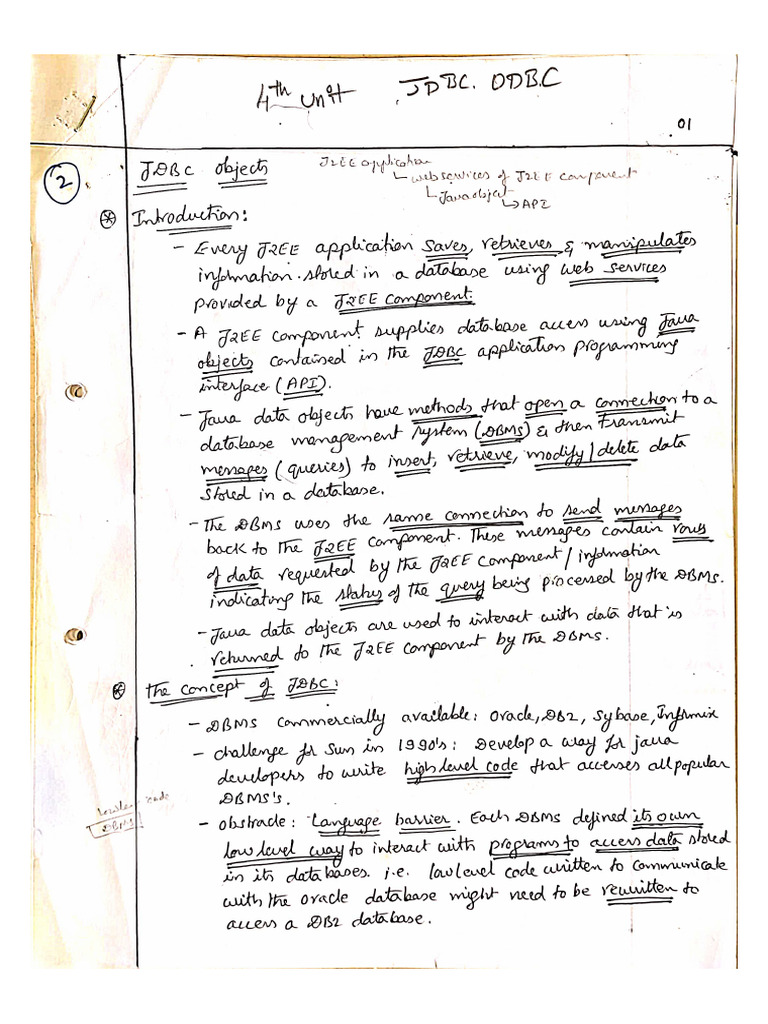 4th Unit JDBC. ODBC
01
2
JDBC objects
J2EE application
web services of J2EE component
Java object
API
Introduction:
- Every J2EE application saves, retrieves & manipulates
information stored in a database using web services
provided by a J2EE component.
- A J2EE component supplies database access using Java
objects contained in the JDBC application programming
interface (API).
- Java data objects have methods that open a connection to a
database management system (DBMS) & then transmit
messages (queries) to insert, retrieve, modify/delete data
stored in a database.
- The DBMS uses the same connection to send messages
back to the J2EE component. These messages contain rows
of data requested by the J2EE component / information
indicating the status of the query being processed by the DBMS.
- Java data objects are used to interact with data that is
returned to the J2EE component by the DBMS.
The concept of JDBC:
- DBMS commercially available: Oracle, DB2, Sybase, Informix
- challenge for Sun in 1990's: Develop a way for java
developers to write high level code that accesses all popular
DBMS's.
- obstracle: Language barrier. Each DBMS defined its own
low level way to interact with programs to access data stored
in its databases. i.e. low level code written to communicate
with the oracle database might need to be rewritten to
access a DB2 database.
low level code
DBMS